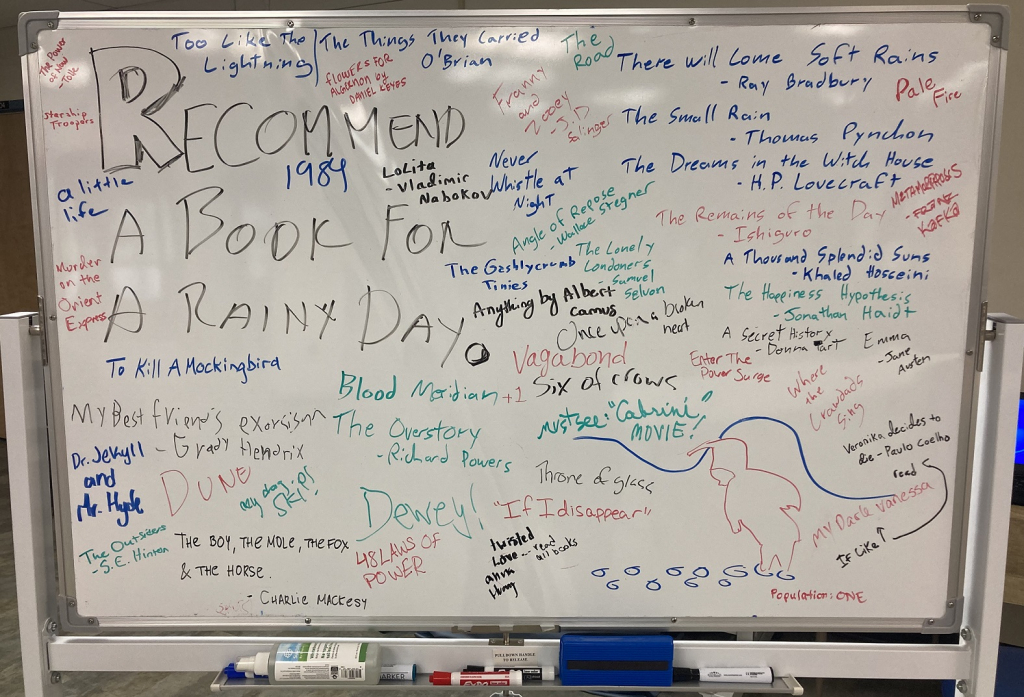 The Power
of Now
- Tolle
Starship
Troopers
RECOMMEND
A BOOK FOR
A RAINY DAY.
Too Like The
Lightning
The Things They Carried
O'Brian
FLOWERS FOR
ALGERNON by
DANIEL KEYES
The
Road
There will Come Soft Rains
- Ray Bradbury
Pale
Fire
Franny
and
Zooey
- J.D
Salinger
The Small Rain
- Thomas Pynchon
The Dreams in the Witch House
- H.P. Lovecraft
METAMORPHOSIS
KAFKA
a little
life
1984
LoLita
- Vladimir
Nabokov
Never
Whistle at
Night
Angle of Repose
- Wallace Stegner
The Remains of the Day
- Ishiguro
A Thousand Splendid Suns
- Khaled Hosseini
The Lonely
Londoners
- Samuel
Selvon
The Gashlycrumb
Tinies
Murder
on the
Orient
Express
Anything by Albert
Camus
The Happiness Hypothesis
- Jonathan Haidt
Once upon a broken
heart
A Secret History
- Donna Tart
Emma
- Jane
Austen
To Kill A Mockingbird
Vagabond
Enter The
Power Surge
Where
the
Crawdads
Sing
Blood Meridian +1
Six of crows
My Best friend's exorcism
- Grady Hendrix
The Overstory
- Richard Powers
Must see: "Cabrini"
MOVIE!
Veronika decides to
Die - Paulo Coelho
read
Dr. Jekyll
and
Mr. Hyde
DUNE
SKI!
Throne of glass
My Dark Vanessa
If Like ↑
Dewey!
"If I disappear"
The Outsiders
- S.E. Hinton
THE BOY, THE MOLE, THE FOX
& THE HORSE.
- CHARLIE MACKESY
48 LAWS OF
POWER
twisted
Love -- read
all books
anna
Huang
Population: ONE
PULL DOWN HANDLE
TO RELEASE